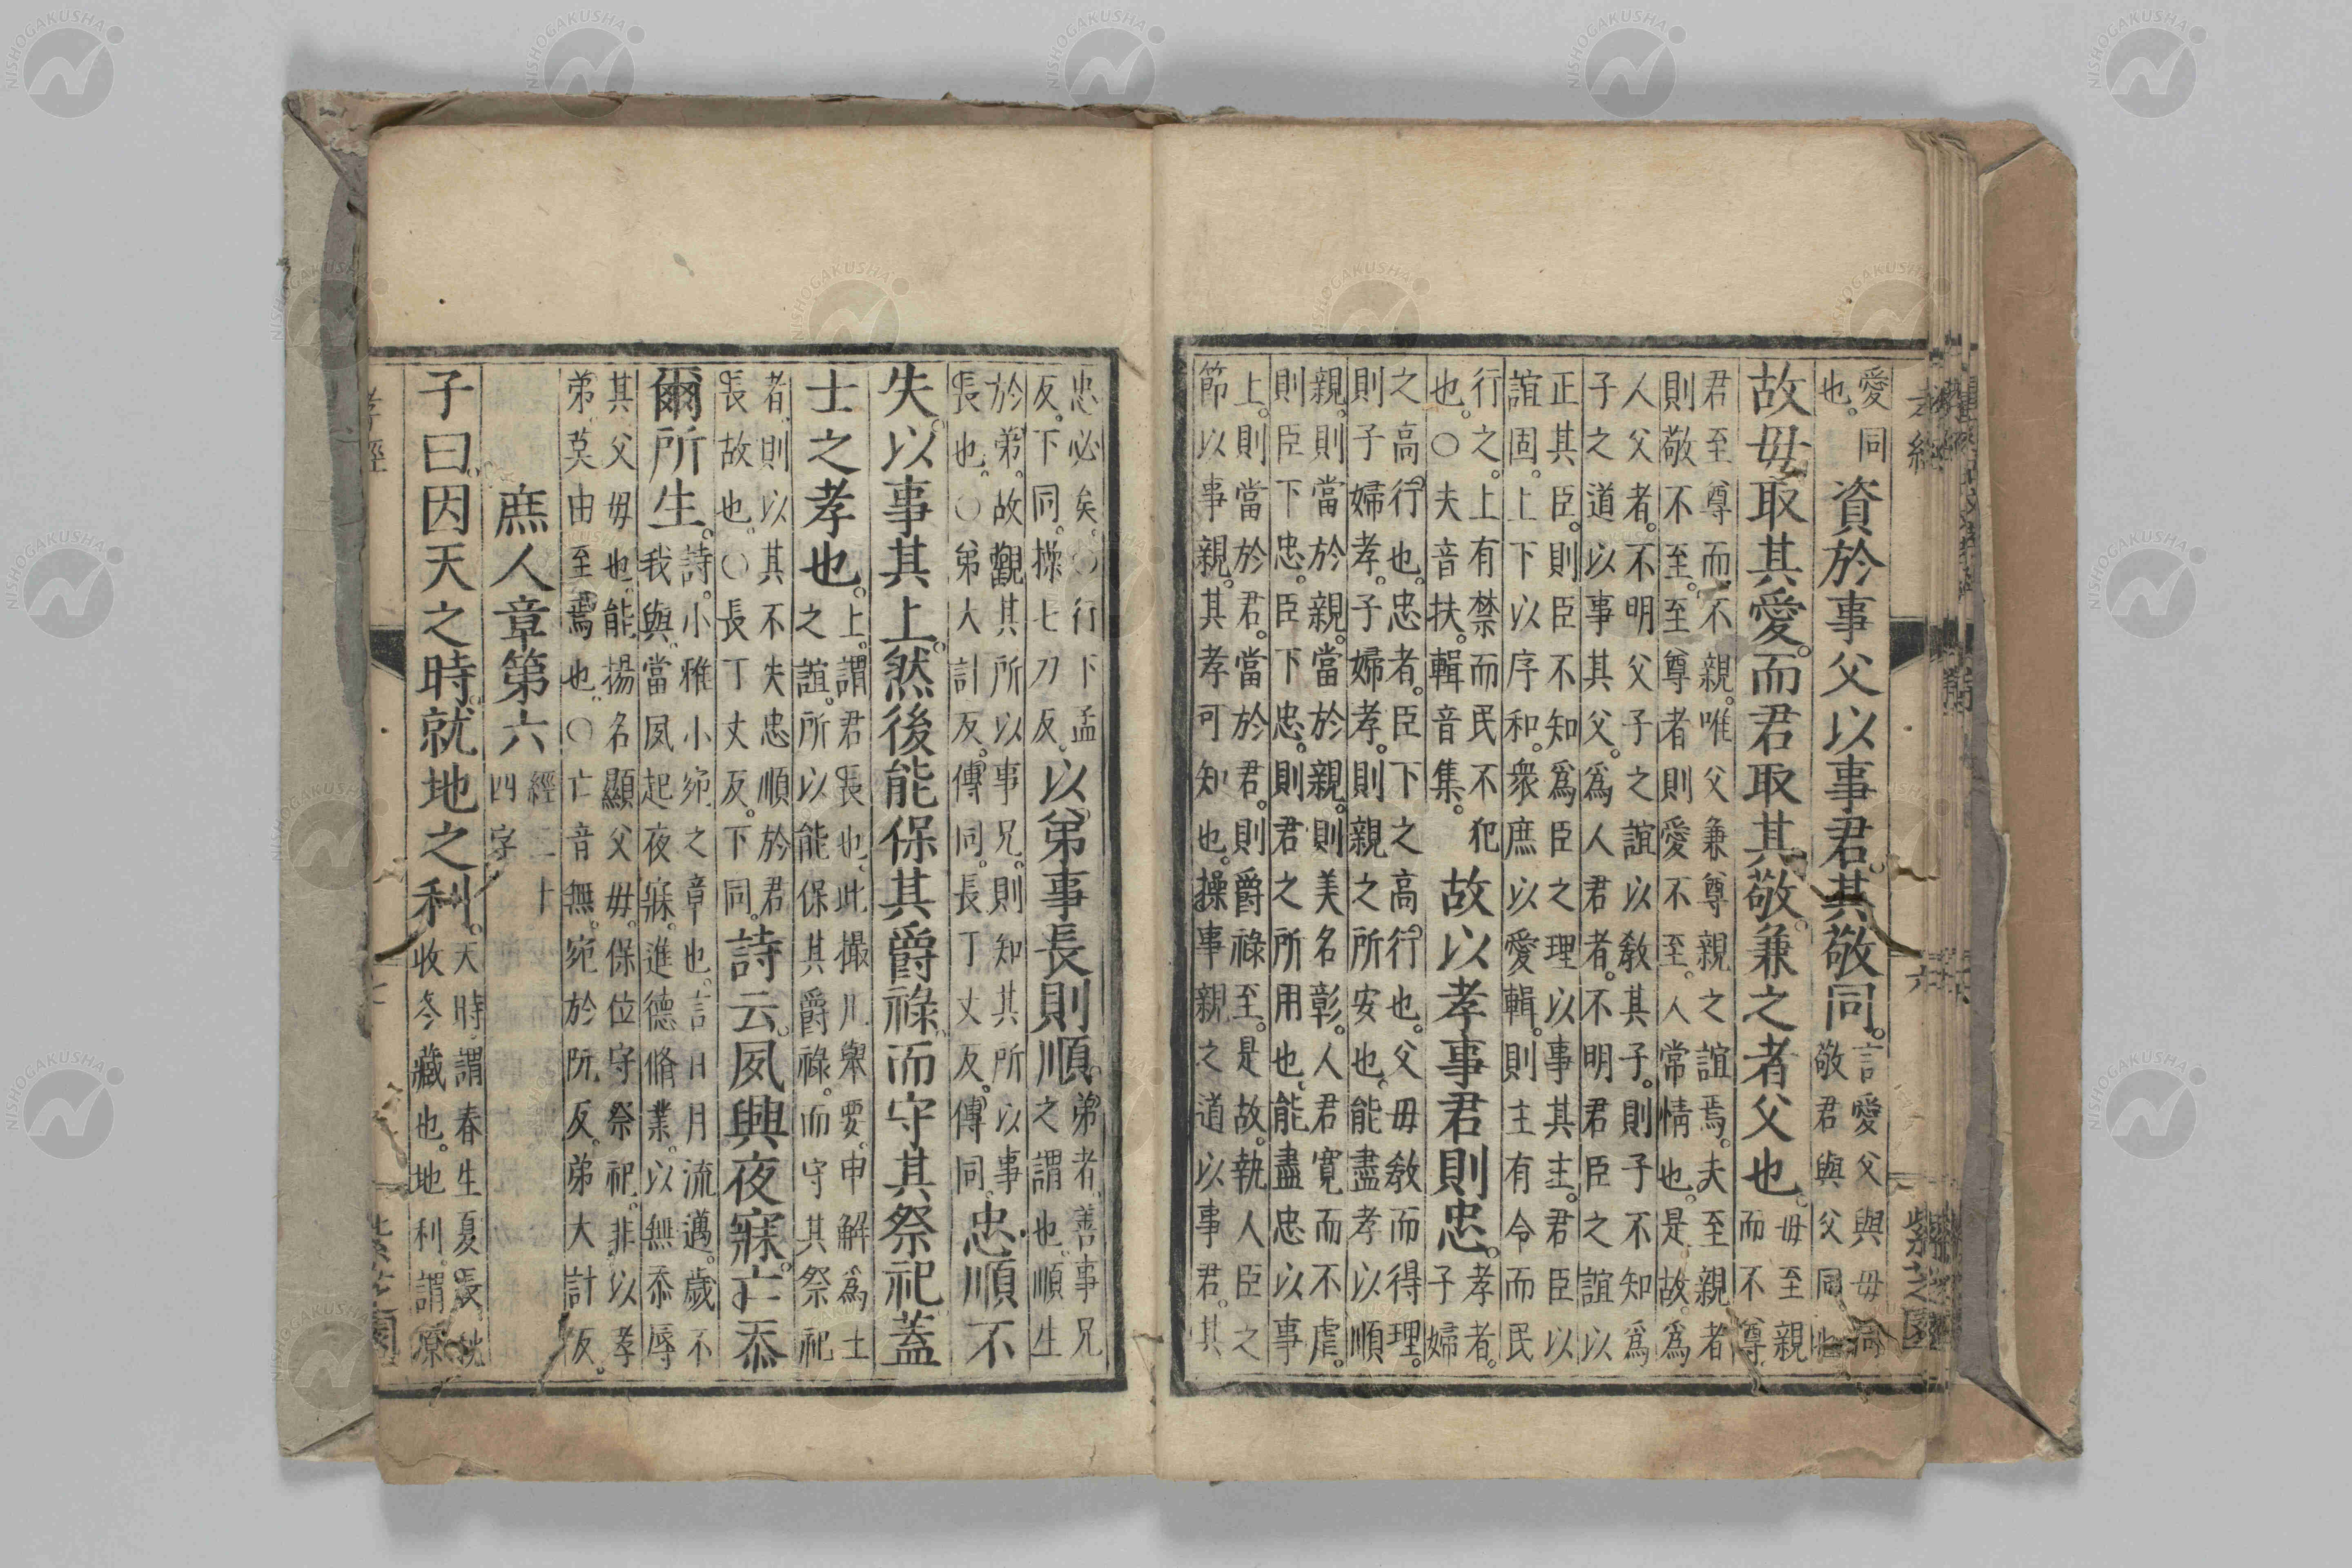 孝經
六
紫芝園
愛同
也。
資於事父以事君。其敬同。
言愛父與母同
敬君與父同也
故母取其愛。而君取其敬。兼之者父也。
母至親
而不尊
君至尊而不親。唯父兼尊親之誼焉。夫至親者
則敬不至。至尊者則愛不至。人常情也。是故。爲
人父者。不明父子之誼以教其子。則子不知爲
子之道以事其父。爲人君者。不明君臣之誼以
正其臣。則臣不知爲臣之理以事其主。君臣以
誼固。上下以序和。衆庶以愛輯。則主有令而民
行之。上有禁而民不犯
也。○夫音扶。輯音集。
故以孝事君則忠。
孝者。
子婦
之高行也。忠者。臣下之高行也。父母教而得理。
則子婦孝。子婦孝。則親之所安也。能盡孝以順
親。則當於親。當於親。則美名彰。人君寬而不虐。
則臣下忠。臣下忠。則君之所用也。能盡忠以事
上。則當於君。當於君。則爵祿至。是故。執人臣之
節以事親。其孝可知也。操事親之道以事君。其
忠必矣。○行下孟
反。下同。操七刀反。
以弟事長則順。
弟者。善事兄
之謂也。順生
於弟。故觀其所以事兄。則知其所以事
長也。○弟大計反。傳同。長丁丈反。傳同。
忠順不
失。以事其上。然後能保其爵祿。而守其祭祀。蓋
士之孝也。
上。謂君長也。此撮凡舉要。申解爲士
之誼。所以能保其爵祿。而守其祭祀
者。則以其不失忠順於君
長故也。○長丁丈反。下同。
詩云。夙興夜寐。亡忝
爾所生。
詩。小雅小宛之章也。言日月流邁。歲不
我與。當夙起夜寐。進德脩業。以無忝辱
其父母也。能揚名顯父母。保位守祭祀。非以孝
弟。莫由至焉也。○亡音無。宛於阮反。弟大計反。
庶人章第六
經二十
四字
子曰。因天之時。就地之利。
天時。謂春生夏長秋
收冬藏也。地利。謂原
孝經
紫芝園
NISHOGAKUSHA